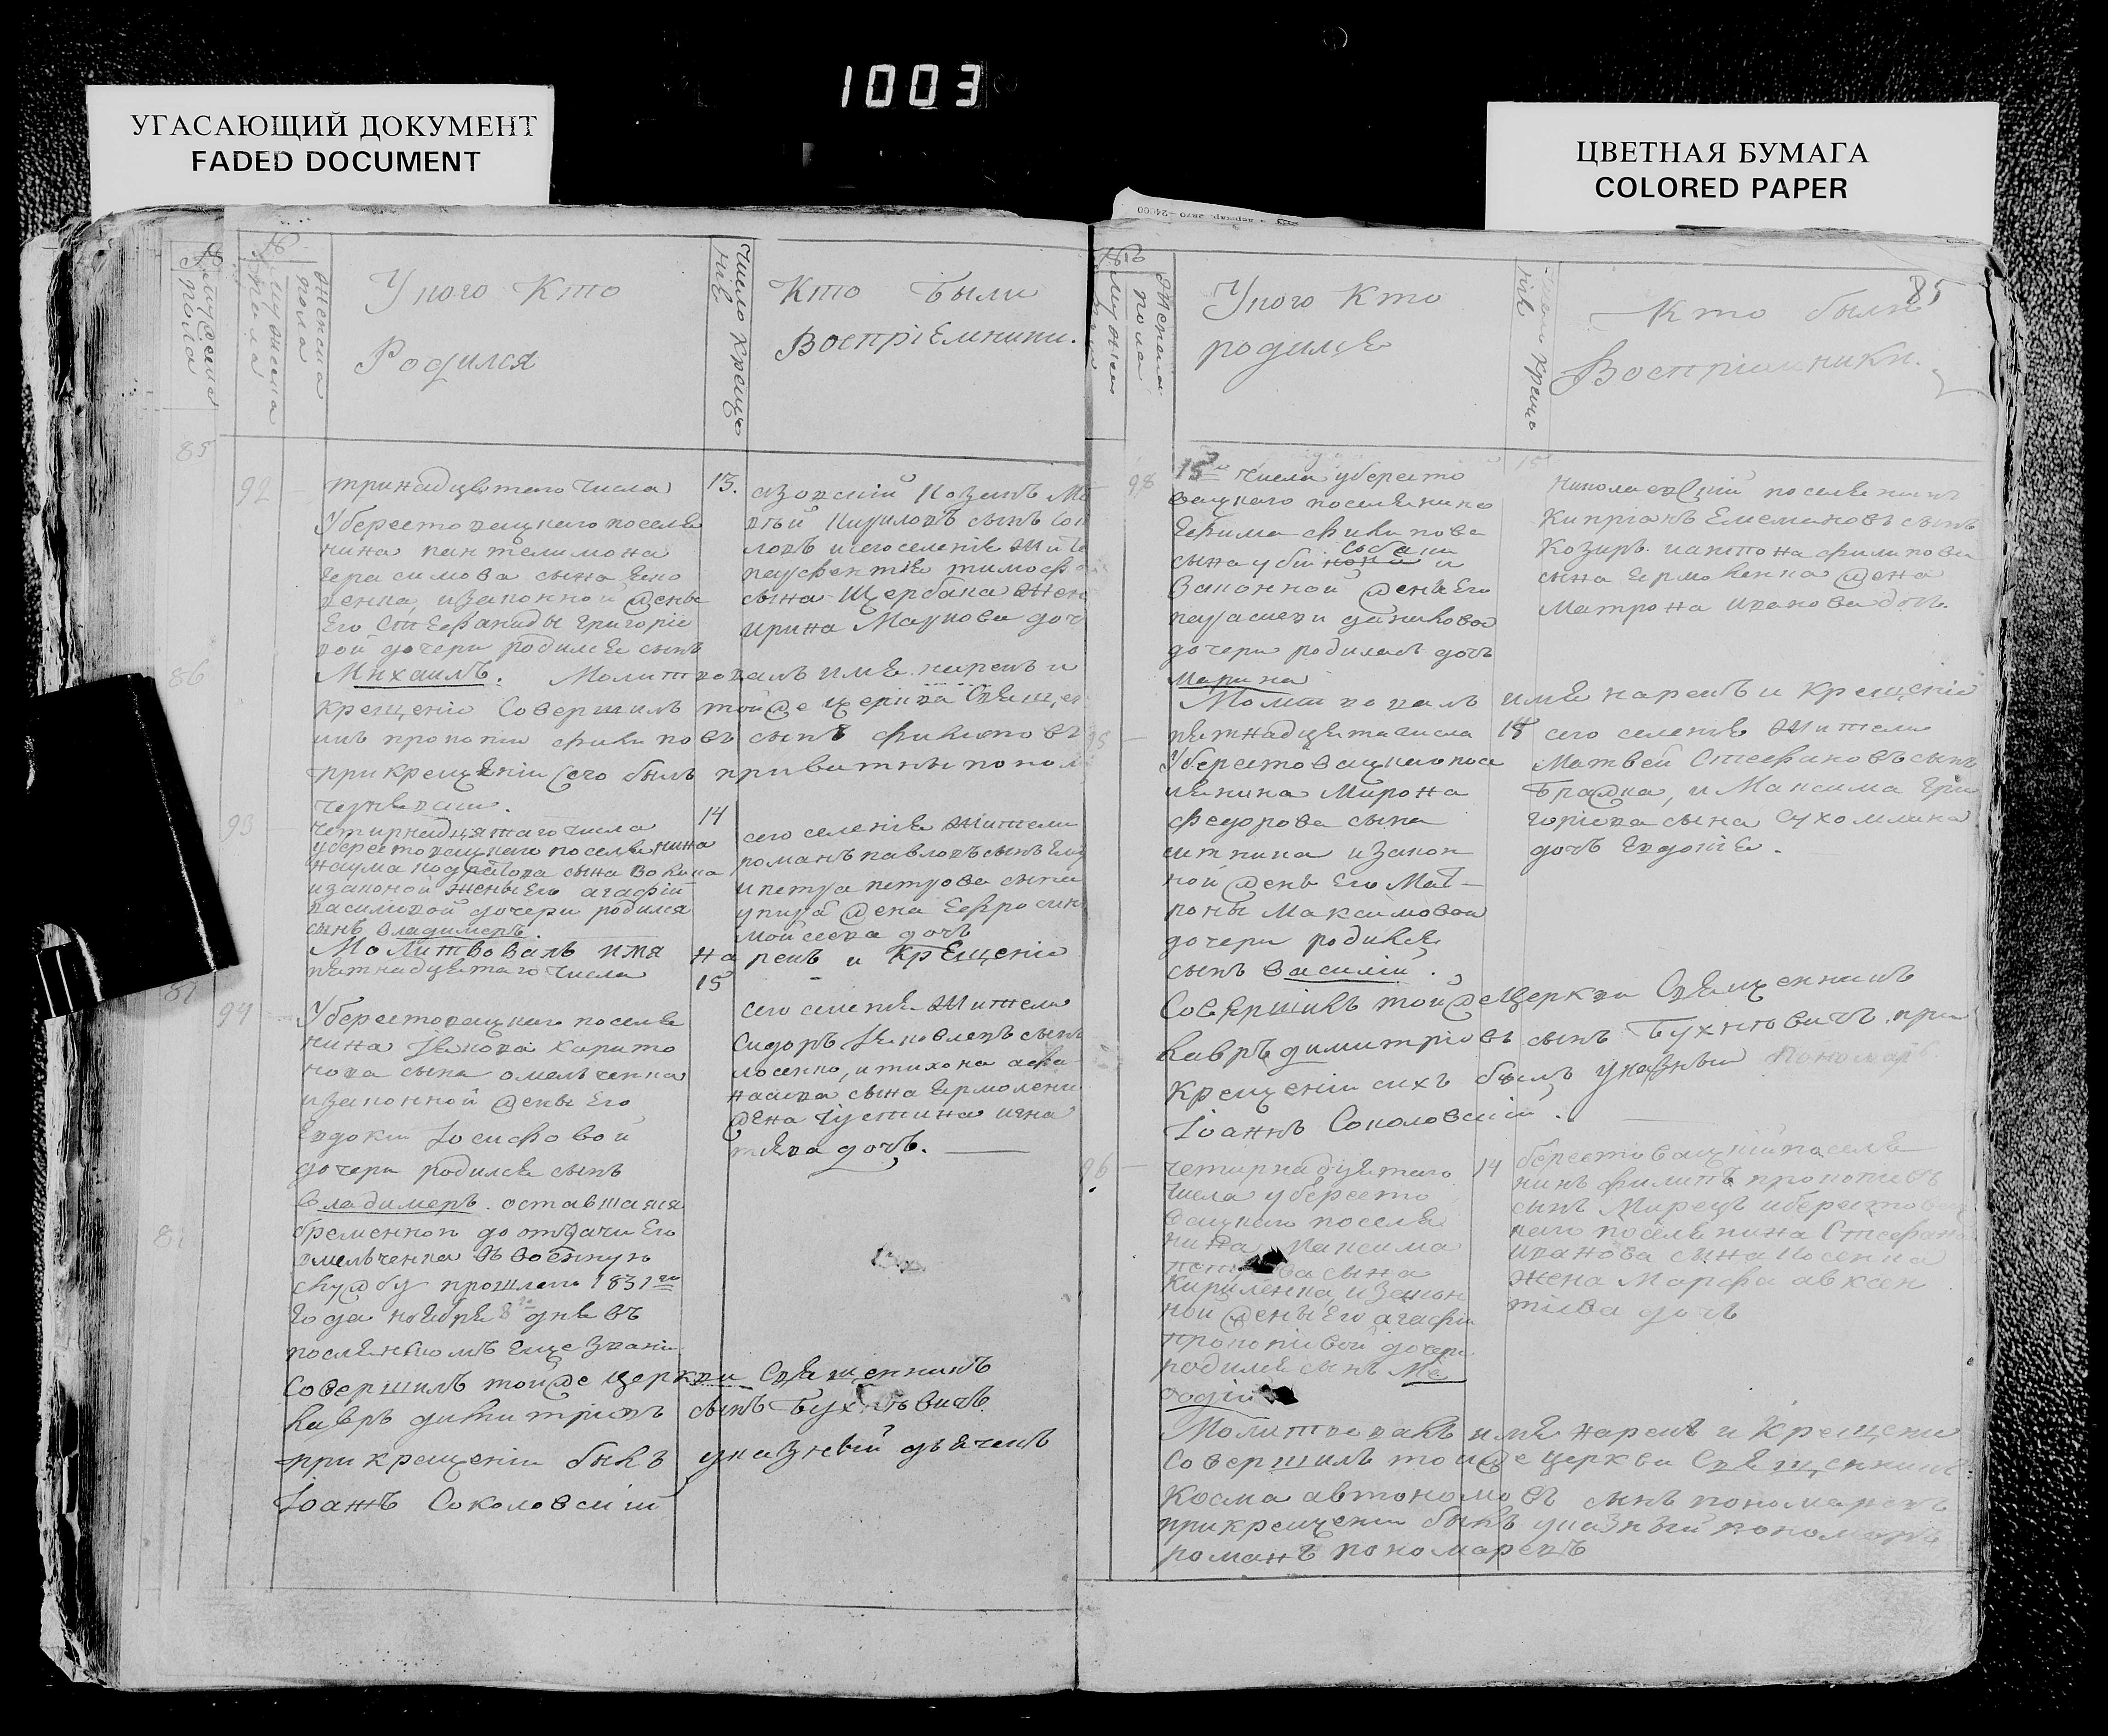 1003
УГАСАЮЩИЙ ДОКУМЕНТ
FADED DOCUMENT
ЦВЕТНАЯ БУМАГА
COLORED PAPER
Женска
пола
У кого Кто
Родился
Число Креще
Кто Были
Воспріемники.
85
92
тринадцятаго числа
13.
Уберестовацкаго поселя
нина пантелимона
Герасимова сына
и законной жены
Его Стефаниды Григоріе
вой дочери родился сынъ
Михаилъ.
азовскій Козакъ
Кириловъ сынъ
и сего селенія
тимоф
сына Щербака жен
ирина Маркова доч
86
Молитвовалъ имя нарекъ и
крещеніе Совершилъ тойже церкви Свящ
прокопій филиповъ сынъ
при крещеніи сего былъ
93
14
четирнадцятаго числа
уберестовацкаго поселянина
наума сына
и законой жены Его агафіи
василивой дочери родился
сынъ Владимеръ.
сего селенія жители
романъ павловъ сынъ
и петра петрова сына
жена Ефросин
мойсеева дочь
Молитвовалъ имя нарекъ и Крещеніе
пятнадцятаго числа
15
87
94
Уберестовацкаго поселя
нина Якова Харито
нова сына омельченка
и законной жены Его
Евдокіи Іосифовой
дочери родился сынъ
Владимеръ. оставшаяся
бременной до отдачи Его
омельченка въ военную
службу прошлого 1831го
Года ноября 8го дня въ
еще званіи
сего селенія жители
Сидоръ Яковлевъ сынъ
и тихона афа
насіева сына Ермоленк
жена Іустина игна
тіева дочь.
Совершилъ тойже церкви Священникъ
Лавръ димитріевъ сынъ Бухновичъ
при крещеніи былъ указный дьячекъ
Іоаннъ Соколовскій
85
Женска
пола
У кого Кто
родился
Креще
Кто были
Воспріемники.
98
15го числа убересто
вацкаго поселянина
Ефима филипова
сына
законной жены Его
параскеви даниловой
дочери родилась дочь
Марина
15
поселянинъ
Кипріанъ Емельяновъ сынъ
Козиръ. и антона филипова
сына Ермоленка жена
Матрона иванова дочь.
Молитвовалъ имя нарекъ и Крещеніе
95
пятнадцята числа
15
Уберестовацкаго посе
лянина Мирона
федорова сына
ситника и закон
ной жены Его Мат
роны Максимовой
дочери родился
сынъ Василій.
сего селенія жители
Матвей Стефановъ сынъ
Бражка, и Максима Гри
горіева сына Сухомлина
дочь Евдокія.
Совершилъ тойже Церкви Священникъ
Лавръ димитріевъ сынъ Бухновичъ при
крещеніи сихъ былъ указный пономарь
Іоаннъ Соколовскій.
96
четирнадцятаго
14
числа у бересто
вацкаго поселя
нина максима
сына
Кириленка, и закон
ной жены Его агафіи
прокопіевой дочери
родился сынъ Ме
фодій
берестовацкій поселя
нинъ филипъ прокопіевъ
сынъ и берестовац
каго поселянина Стефана
иванова сына Косенка
жена Марфа авксен
тіева дочь
Молитвовалъ имя нарекъ и Крещеніе
Совершилъ тойже церкви Священникъ
Косма автономовъ сынъ пономаревъ
при крещеніи былъ указный пономарь
романъ пономаревъ